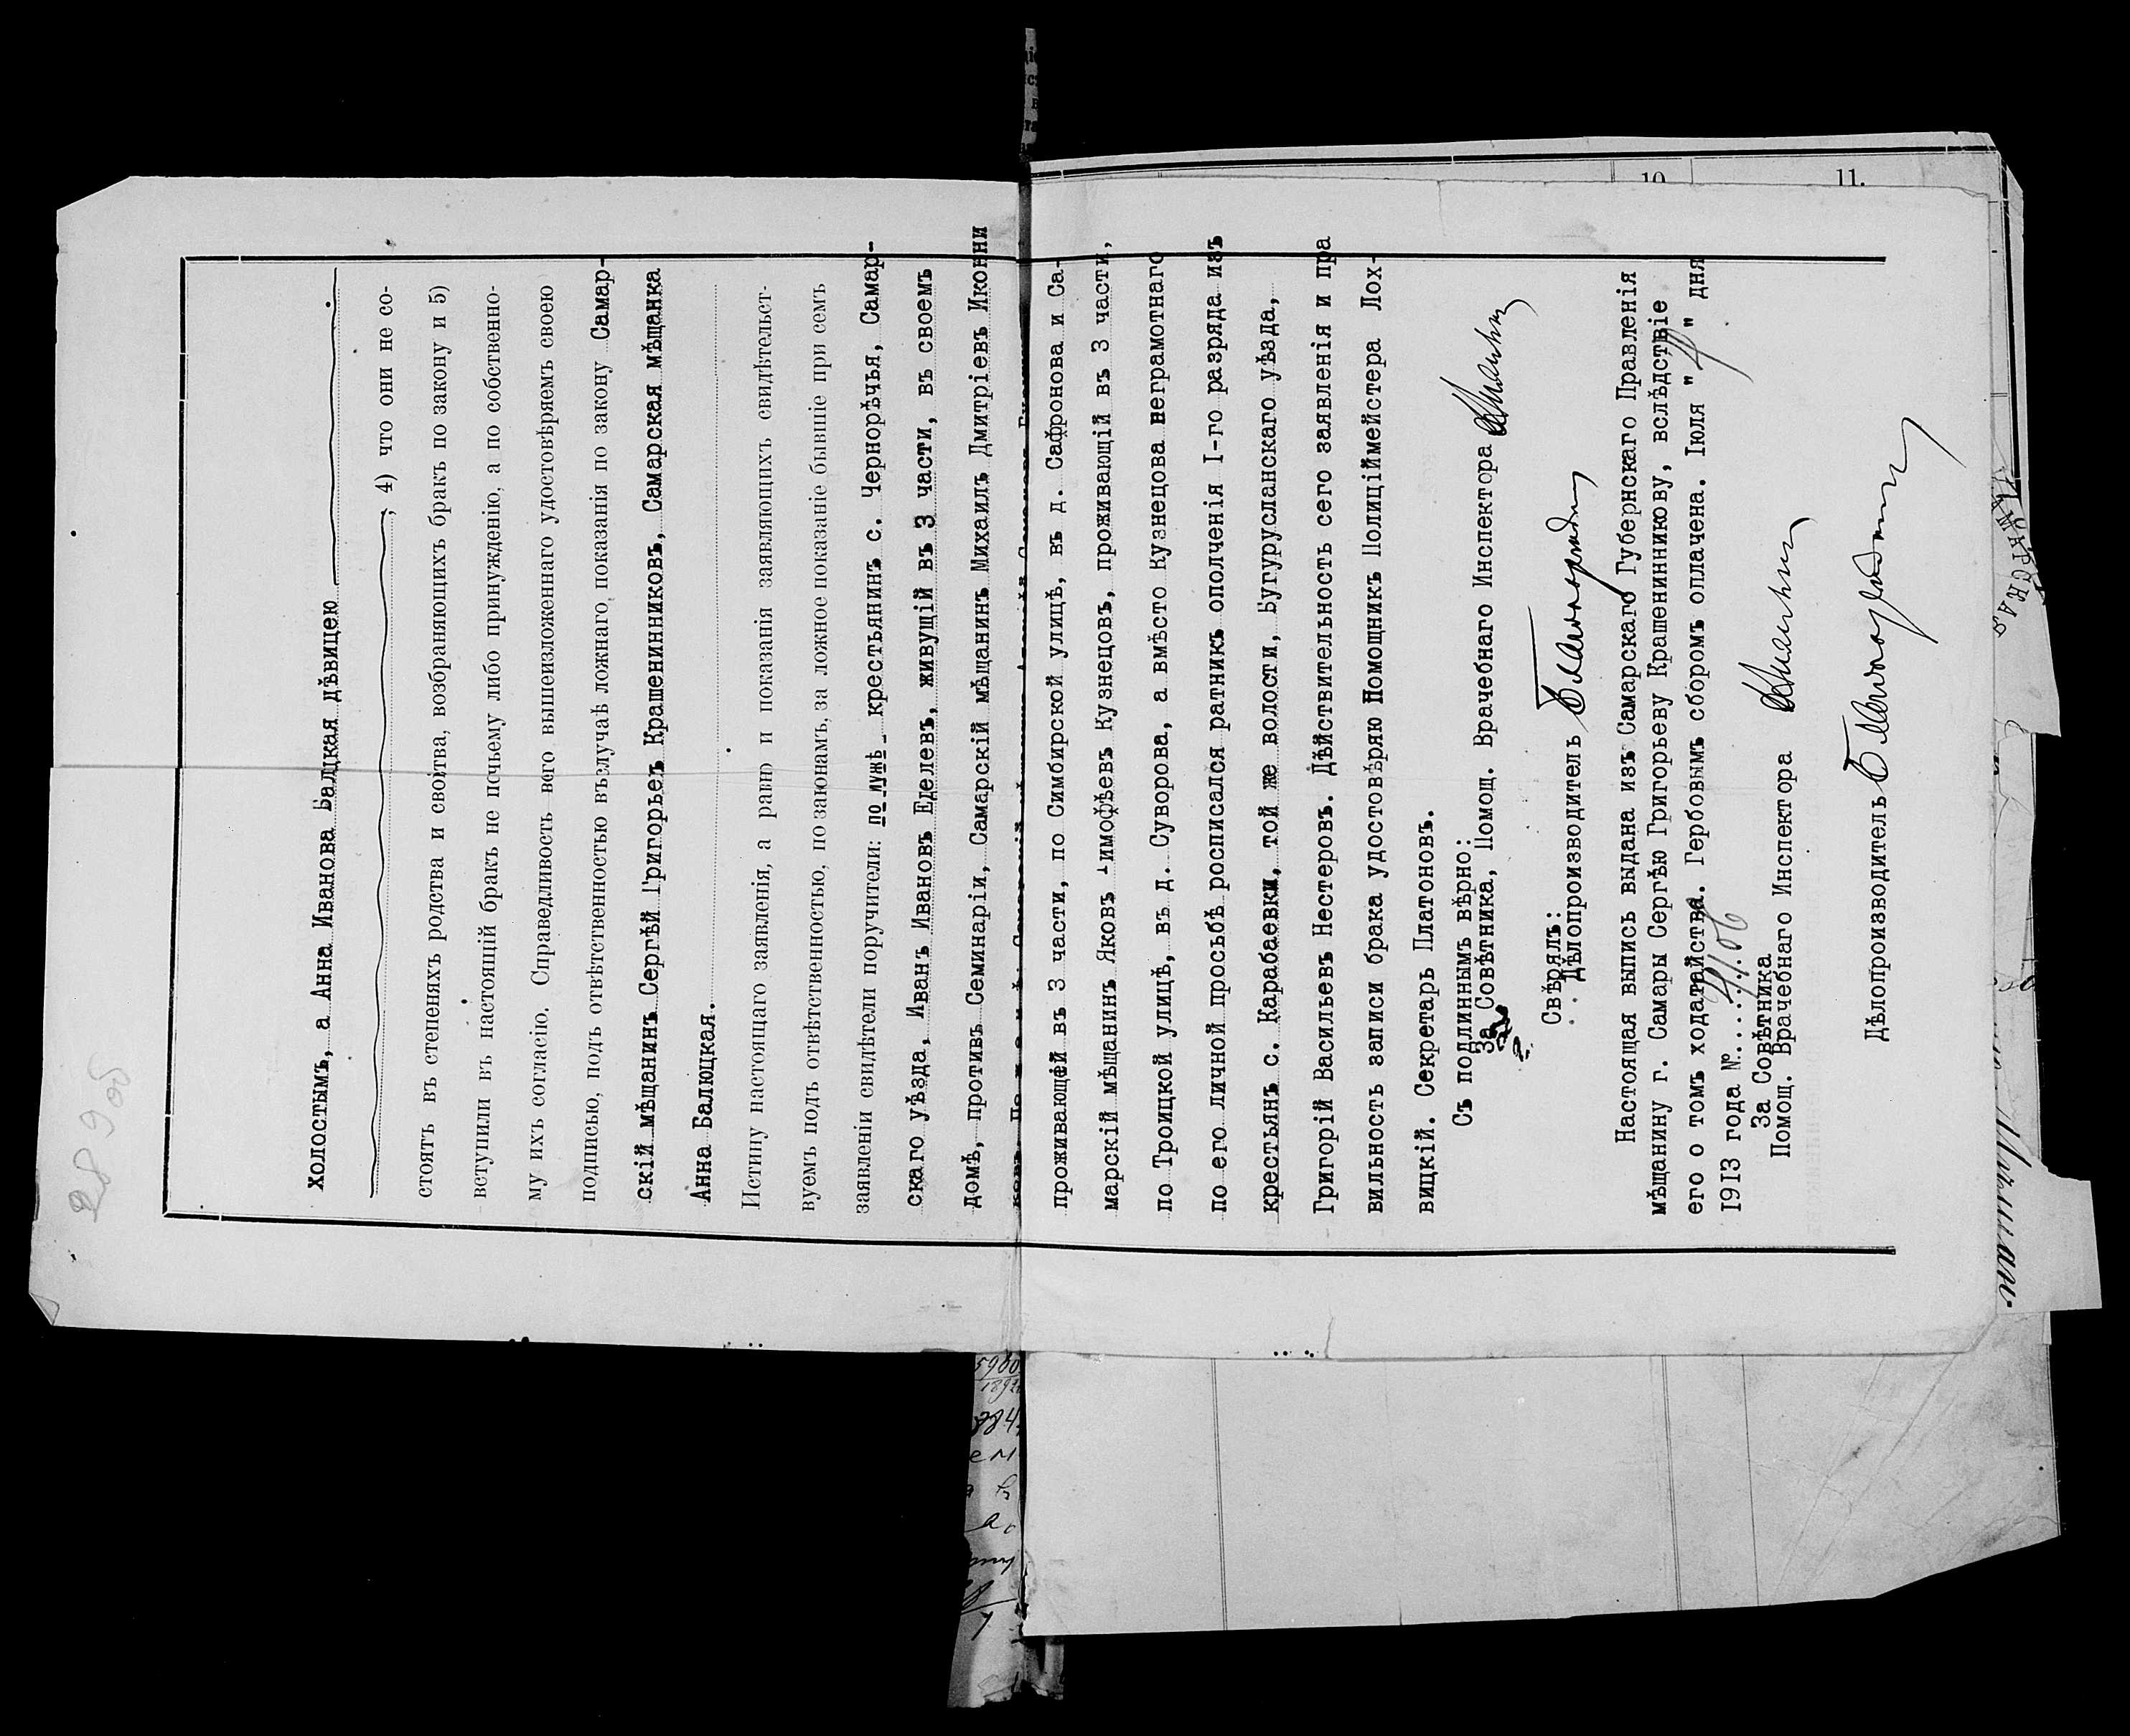 холостымъ, а Анна Иванова Балцкая дѣвицею
; 4) что они не со-
стоятъ въ степеняхъ родства и свойтва, возбраняющихъ бракъ по закону и 5)
вступили въ настоящій бракъ не почьему либо принужденію, а по собственно-
му ихъ согласію. Справедливость всего вышеизложеннаго удостовѣряемъ своею
подписью, подъ отвѣтственностью въ случаѣ ложнаго показанія по закону Самар-
скій мѣщанинъ Сергѣй Григорьев Крашенинниковъ, Самарская мѣщанка
Анна Балюцкая.
Истину настоящаго заявленія, а равно и показанія заявляющихъ свидѣтельст-
вуемъ подъ отвѣтственностью, по законамъ, за ложное показаніе бывшіе при семъ
заявленіи свидѣтели поручители: по мужѣ - крестьянинъ с. Чернорѣчья, Самар-
скаго уѣзда, Иванъ Ивановъ Еделевъ, живущій въ 3 части, въ своемъ
домѣ, противъ Семинаріи, Самарскій мѣщанинъ Михаилъ Дмитріевъ Иконни
проживающей въ 3 части, по Симбирской улицѣ, въ д. Сафронова и Са-
марскій мѣщанинъ Яковъ Тимофѣевъ Кузнецовъ, проживающій въ 3 части,
по Троицкой улицѣ, въ д. Суворова, а вмѣсто Кузнецова неграмотнаго
по его личной просьбѣ росписался ратникъ ополченія I-го разряда изъ
крестьянъ с. Карабаевки, той же волости, Бугурусланскаго уѣзда,
Григорій Васильевъ Нестеровъ. Дѣйствительность сего заявленія и пра
вильность записи брака удостовѣряю Помощникъ Полиціймейстера Лох-
вицкій. Секретарь Платоновъ.
Съ подлиннымъ вѣрно:
За Совѣтника, Помощ. Врачебнаго Инспектора
Свѣрялъ:
Дѣлопроизводитель
Настоящая выпись выдана изъ Самарскаго Губернскаго Правленія
мѣщанину г. Самары Сергѣю Григорьеву Крашенинникову, вслѣдствіе
его о томъ ходатайства. Гербовымъ сборомъ оплачена. Іюля " " дня
1913 года №
За Совѣтника
Помощ. Врачебнаго Инспектора
Дѣлопроизводитель
10
11.